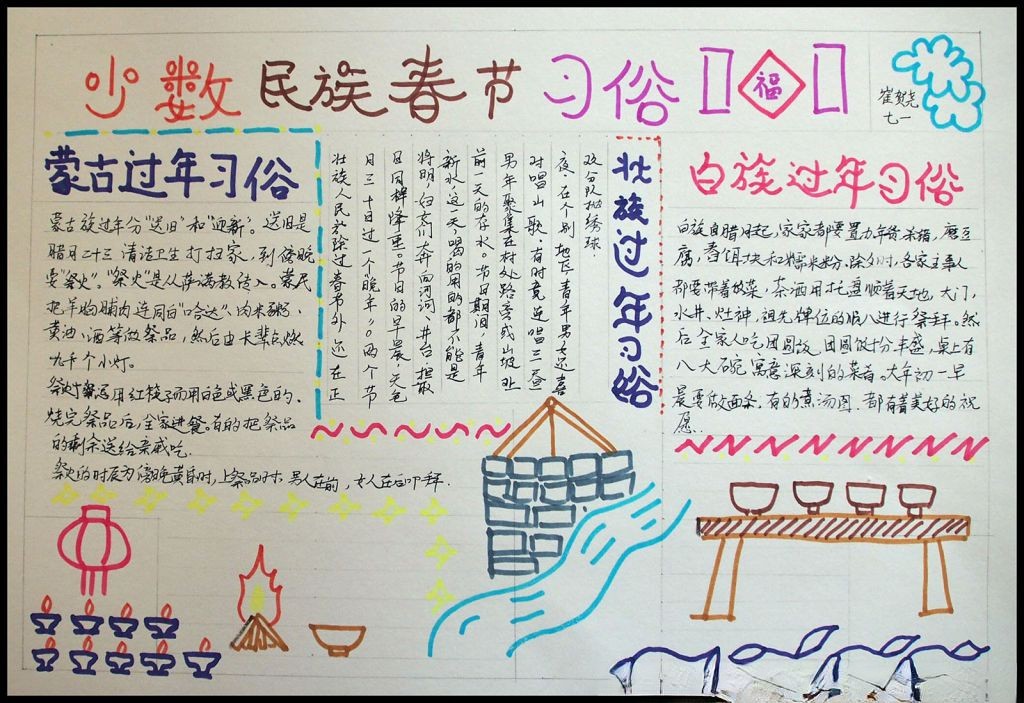 少数民族春节习俗
福
崔贺尧
七一
蒙古过年习俗
蒙古族过年分“送旧”和“迎新”。送旧是
腊月二十三清洁卫生打扫家，到傍晚
要“祭火”。“祭火”是从萨满教传入。蒙民
把羊胸脯肉连同白“哈达”、肉米粥、
黄油、酒等做祭品，然后由长辈点燃
九个小灯。
祭灶用红筷子而用白色或黑色的、
烧完祭品后，全家进餐。有的把祭品
的剩余送给亲戚吃.
祭火的时辰为傍晚黄昏时，上祭品时，男人在前，女人在后叩拜.
壮族过年习俗
壮族人民於除过春节外，还在正
月三十日过“晚年”。两个节
日同样隆重。节日的早晨，天色
将明，妇女们大奔向河河、井台，担取
新水，这一天，喝的用的都不能是
前一天的存水。节日期间，青年
男年聚集在村处路旁或山坡处
对唱山歌、有时竟连唱三昼
夜。在个别地区，青年男女还喜
欢分队抛绣球.
白族过年习俗
白族自腊月起，家家都要置办年货，杀猪，磨豆
腐，舂饵块和糯米粉。除夕时，各家主事人
都要带着饭菜，茶酒用托盘顺着天地，大门，
水井、灶神，祖先牌位的顺八进行祭拜。然
后全家人吃团圆饭，团圆饭十分丰盛，桌上有
八大碗寓意深刻的菜肴。大年初一早
晨要做面条，有的煮汤圆，都有着美好的祝
愿.